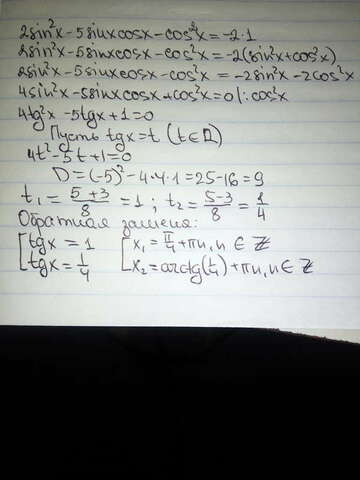 2sin²x - 5sinxcosx - cos²x = -2·1
2sin²x - 5sinxcosx - cos²x = -2(sin²x + cos²x)
2sin²x - 5sinxcosx - cos²x = -2sin²x - 2cos²x
4sin²x - 5sinxcosx + cos²x = 0 |: cos²x
4tg²x - 5tgx + 1 = 0
Пусть tgx = t (t ∈ D)
4t² - 5t + 1 = 0
D = (-5)² - 4·4·1 = 25 - 16 = 9
t₁ = (5+3)/8 = 1; t₂ = (5-3)/8 = 1/4
Обратная замена:
[tgx = 1 [x₁ = π/4 + πn, n ∈ Z
[tgx = 1/4 [x₂ = arctg(1/4) + πn, n ∈ Z